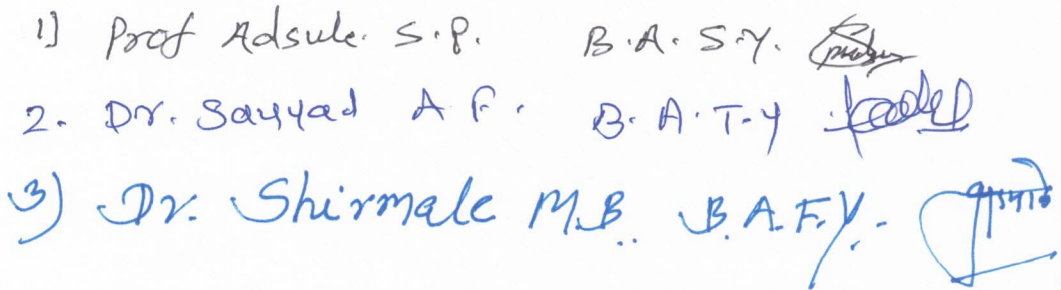 1] Prof Adsule. S.P. B.A. S.Y.
2. Dr. Sayyad A F. B.A.T.Y
3) Dr. Shirmale M.B. B.A.F.Y.